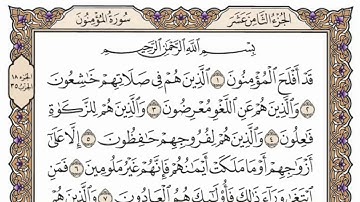 الجزء الثامن عشر
سورة المؤمنون
بِسْمِ اللَّهِ الرَّحْمَٰنِ الرَّحِيمِ
قَدْ أَفْلَحَ الْمُؤْمِنُونَ ١ الَّذِينَ هُمْ فِي صَلَاتِهِمْ خَاشِعُونَ
٢ وَالَّذِينَ هُمْ عَنِ اللَّغْوِ مُعْرِضُونَ ٣ وَالَّذِينَ هُمْ لِلزَّكَاةِ
فَاعِلُونَ ٤ وَالَّذِينَ هُمْ لِفُرُوجِهِمْ حَافِظُونَ ٥ إِلَّا عَلَىٰ
أَزْوَاجِهِمْ أَوْ مَا مَلَكَتْ أَيْمَانُهُمْ فَإِنَّهُمْ غَيْرُ مَلُومِينَ ٦ فَمَنِ
ابْتَغَىٰ وَرَاءَ ذَٰلِكَ فَأُولَٰئِكَ هُمُ الْعَادُونَ ٧ وَالَّذِينَ هُمْ
الجزء ١٨
الحزب ٣٥